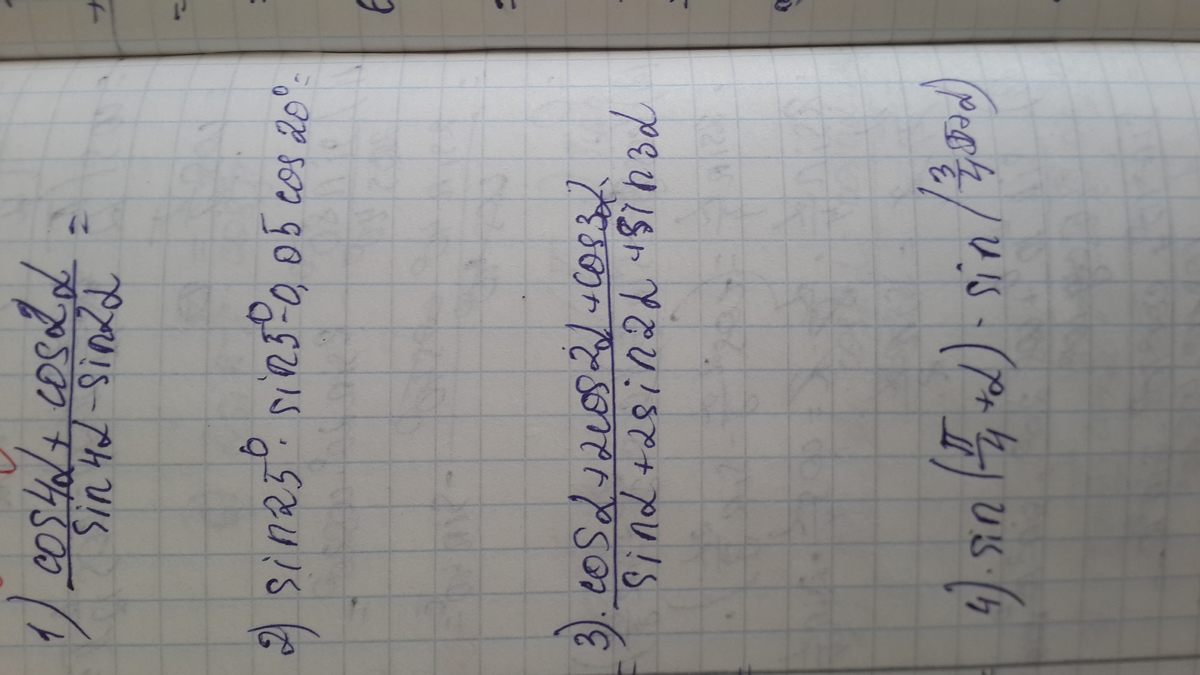 1) (cos4α + cos2α)/(sin4α - sin2α) =
2) sin25° · sin5° - 0,05 cos20° =
3). (cosα + 2cos2α + cos3α)/(sinα + 2sin2α + sin3α)
4). sin(π/4 + α) · sin(